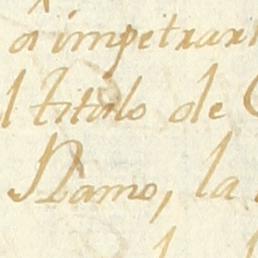 â impetrar
l titulo de
Ramo, la